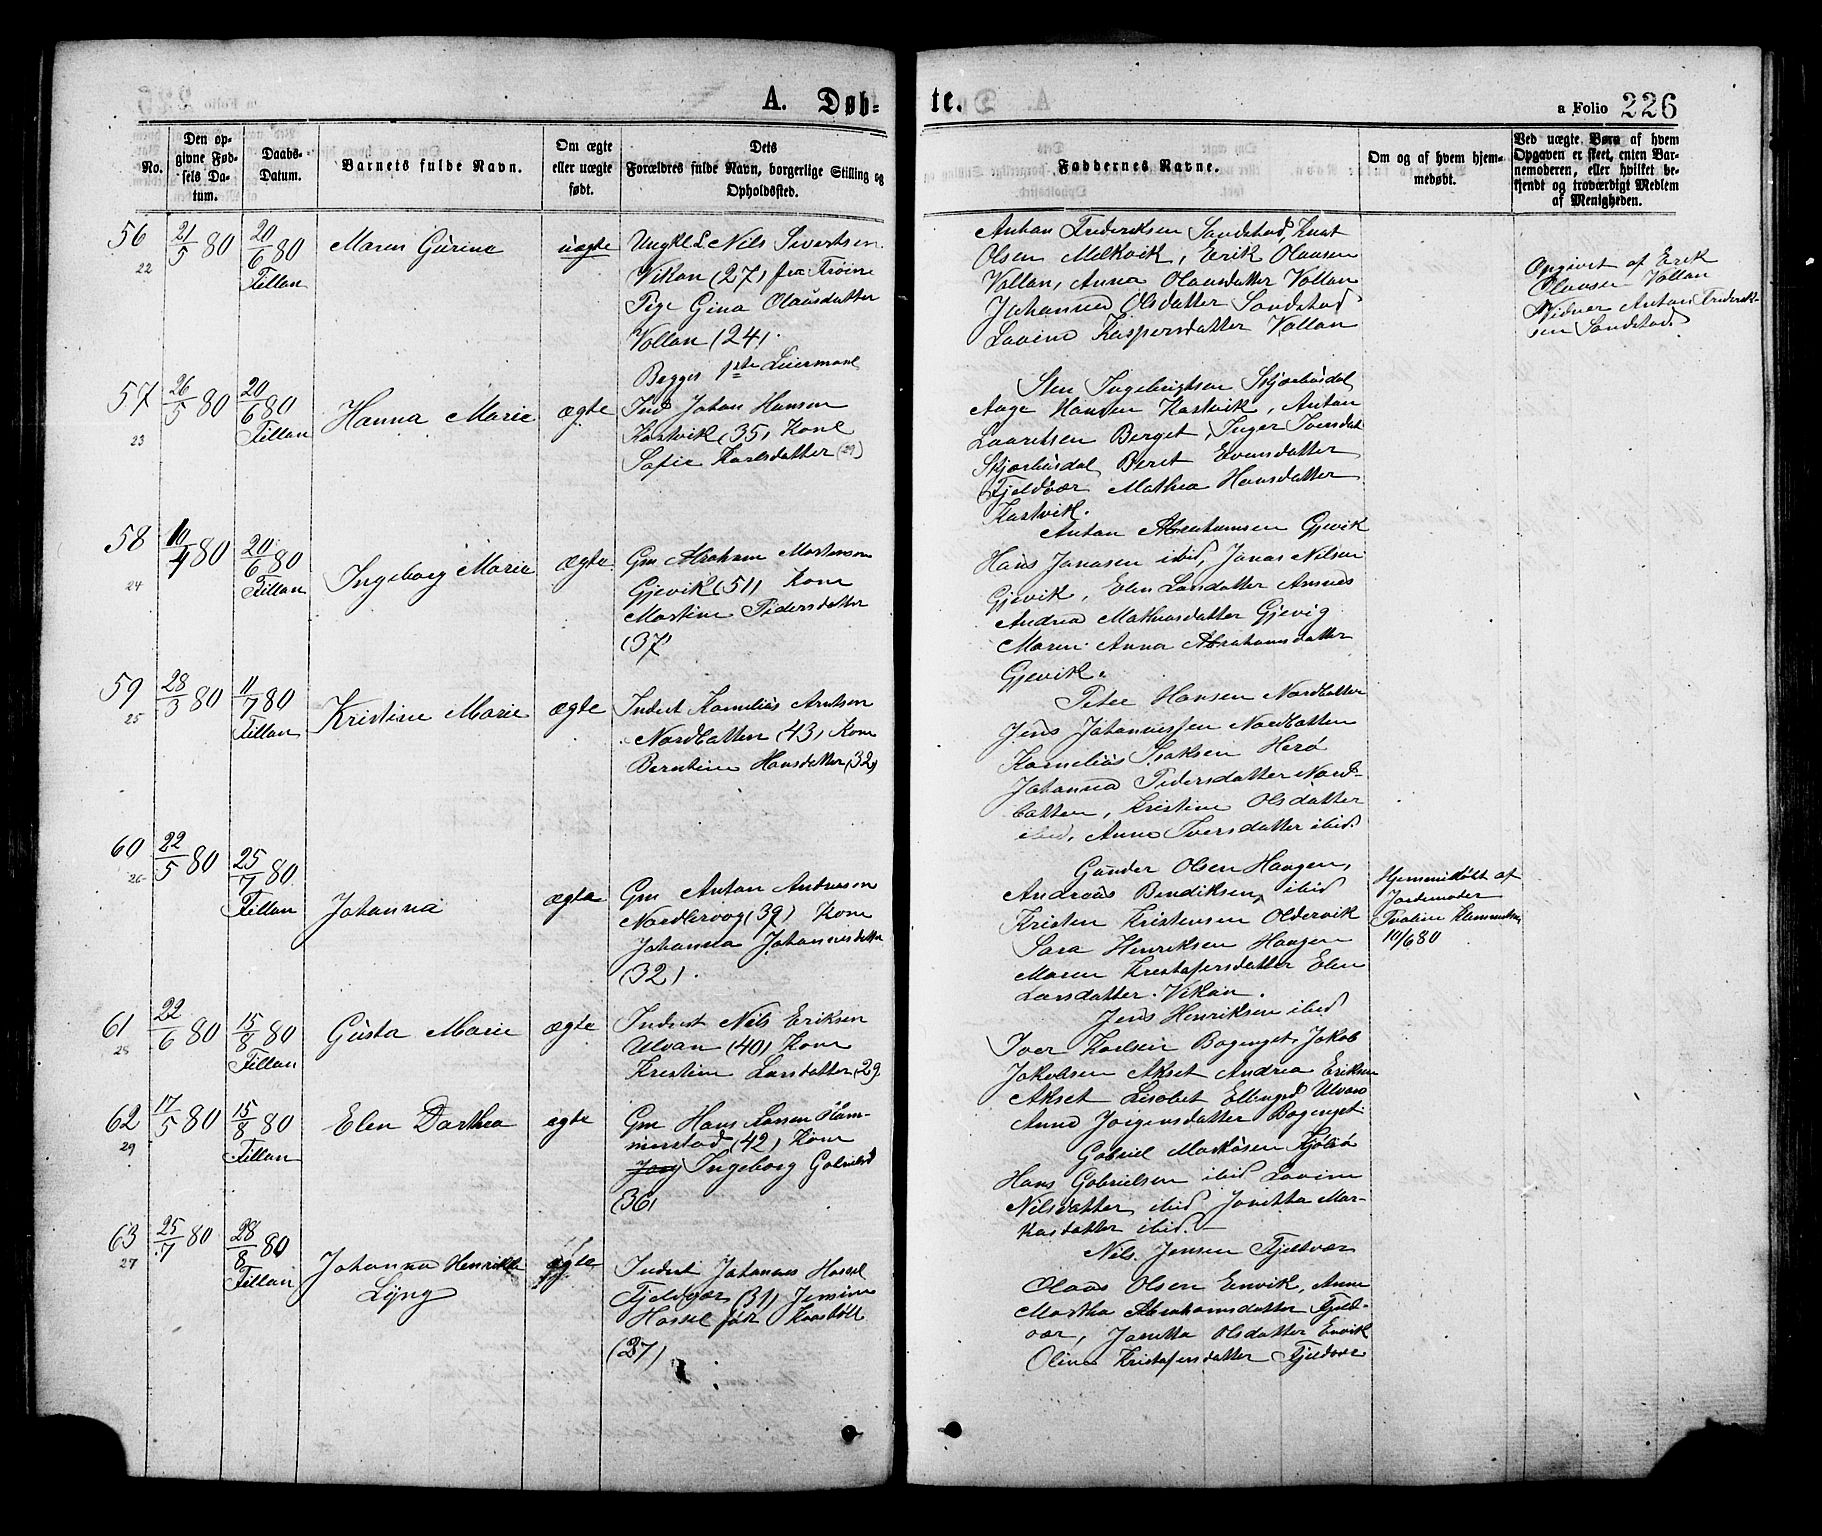 A. Døb-
te.
a Folio 226
No.
Den op-
givne Fød-
sels Da-
tum.
Daabs-
Datum.
Barnets fulde Navn.
Om ægte
eller uægte
født.
Dets
Forældres fulde Navn, borgerlige Stilling og
Opholdssted.
Faddernes Navne.
Om og af hvem hjem-
medøbt.
Ved uægte Børn af hvem
Opgaven er skeet, enten Bar-
nemoderen, eller hvilket be-
kjendt og troværdigt Medlem
af Menigheden.
56
22
21/5 80
20/6 80
Fillan
Maren Gurine
uægte
Ungkl Nils Sivertsen
Vikan (27) fra Frøien
Pige Gina Olausdatter
Vollan (24).
Begges 1ste Leiermaal
Anton Frederiksen Sandstad, Knut
Olsen Melkvik, Erik Olausen
Vollan, Anna Olausdatter Vollan
Johanna Olsdatter Sandstad
Lovine Kaspersdatter Vollan
Opgivet af Erik
Olausen Vollan
Vidner Anton Frederik-
sen Sandstad
57
23
26/5 80
20/6 80
Fillan
Hanna Marie
ægte
Ind Johan Hansen
Kastvik (35) Kone
Sofie Karlsdatter (29)
Sten Ingebrigtsen Skjærbusdal
Aage Hansen Kastvik, Anton
Lauritsen Berget, Inger Iversdat
Skjærbusdal Beret Evensdatter
Fjeldvær Mathea Hansdatter
Kastvik.
58
24
10/4 80
20/6 80
Fillan
Ingeborg Marie
ægte
Gm Abraham Mortensen
Gjevik (51) Kone
Martine Pedersdatter
(37)
Anton Abrahamsen Gjevik
Hans Jonasen ibid, Jonas Nilsen
Gjevik, Elen Larsdatter Ansnes
Andrea Mathiasdatter Gjevig
Maren Anna Abrahamsdatter
Gjevik.
59
25
28/3 80
11/7 80
Fillan
Kristine Marie
ægte
Inderst Kornelius Arntsen
Nordbotten (43) Kone
Berntine Hansdatter (32)
Peter Hansen Nordbotten
Jens Johannessen Nordbotten
Kornelius Isaksen Herø
Johanna Pedersdatter Nord-
botten, Kristine Olsdatter
ibid, Anne Iversdatter ibid.
60
26
22/5 80
25/7 80
Fillan
Johanna
ægte
Gm Anton Andreasen
Nordlervaag (39) Kone
Johanna Johannesdatter
(32).
Gunder Olsen Haugen,
Andreas Bendiksen ibid
Kristen Kristensen Oldervik
Sara Henriksen Haugen
Maren Kristofersdatter Elen
Larsdatter Vikan.
Hjemmedøbt af
Jordemoder
Klemmetsen
10/6 80
61
28
22/6 80
15/8 80
Fillan
Gusta Marie
ægte
Inderst Nils Eriksen
Ulvan (40) Kone
Kristine Larsdatter (29
Jens Henriksen ibid
Iver Karlsen Bogenget, Jakob
Jakobsen Akset Andrea Eriksen
Akset Lisabet Ellingsd Ulvan
Anne Jørgensdatter Bogenget.
62
29
17/5 80
15/8 80
Fillan
Elen Darthea
ægte
Gm Hans Larsen Ham-
merstad (42) Kone
Ingeborg Gabrielsd
(36)
Gabriel Markusen Kjølsø
Hans Gabrielsen ibid Lovine
Nilsdatter ibid Jonetta Mar-
kusdatter ibid.
63
27
25/7 80
28/8 80
Fillan
Johanna Henrikke
Lyng
ægte
Inderst Johannes Hassel
Fjeldvær (31) Jemine
Hassel født Kaasbøll
(27)
Nils Jensen Fjeldvær
Olaus Olsen Envik, Anne
Martha Abrahamsdatter Fjeld-
vær, Jonetta Olsdatter Envik
Oline Kristofersdatter Fjeldvær